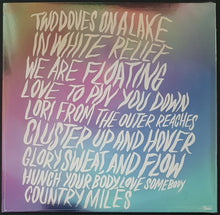 TWO DOVES ON A LAKE
IN WHITE RELIEF
WE ARE FLOATING
LOVE TO PIN YOU DOWN
LORI FROM THE OUTER REACHES
CLUSTER UP AND HOVER
GLORY SWEAT AND FLOW
HUNCH YOUR BODY LOVE SOMEBODY
COUNTRY MILES